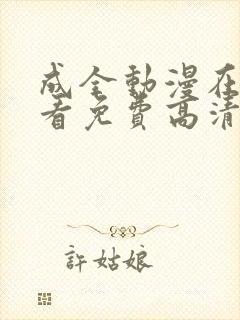 成全動漫在
看免費高清
許姑娘